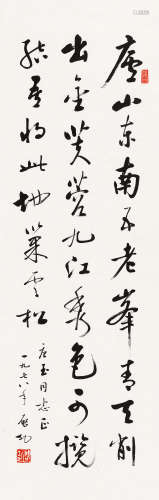 庐山东南五老峰青天削
出金芙蓉九江秀色可揽
结吾将此地巢云松
启玉同志正
一九七八年启功